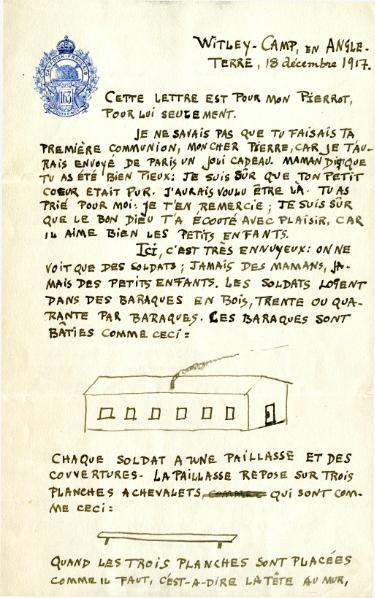 WITLEY-CAMP, EN ANGLE-
TERRE, 18 décembre 1917.
CETTE LETTRE EST POUR MON PIERROT,
POUR LUI SEULEMENT.
JE NE SAVAIS PAS QUE TU FAISAIS TA
PREMIÈRE COMMUNION, MON CHER PIERRE, CAR JE T'AU-
RAIS ENVOYÉ DE PARIS UN JOLI CADEAU. MAMAN DIT QUE
TU AS ÉTÉ BIEN PIEUX: JE SUIS SÛR QUE TON PETIT
COEUR ETAIT PUR. J'AURAIS VOULU ÊTRE LÀ. TU AS
PRIÉ POUR MOI: JE T'EN REMERCIE; JE SUIS SÛR
QUE LE BON DIEU T'A ÉCOUTÉ AVEC PLAISIR, CAR
IL AIME BIEN LES PETITS ENFANTS.
ICI, C'EST TRÈS ENNUYEUX: ON NE
VOIT QUE DES SOLDATS; JAMAIS DES MAMANS, JA-
MAIS DES PETITS ENFANTS. LES SOLDATS LOGENT
DANS DES BARAQUES EN BOIS, TRENTE OU QUA-
RANTE PAR BARAQUES. CES BARAQUES SONT
BÂTIES COMME CECI:
CHAQUE SOLDAT A UNE PAILLASSE ET DES
COUVERTURES. LA PAILLASSE REPOSE SUR TROIS
PLANCHES A CHEVALETS, COMME QUI SONT COM-
ME CECI:
QUAND LES TROIS PLANCHES SONT PLACÉES
COMME IL FAUT, C'EST-A-DIRE LA TÊTE AU MUR,